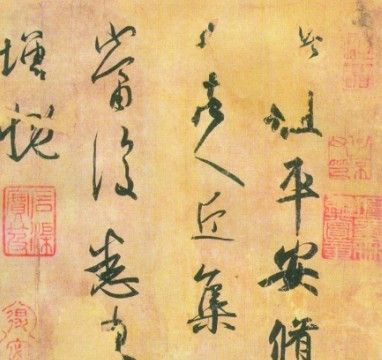 此粗平安脩
日諸人近集
當復悉來
增慨